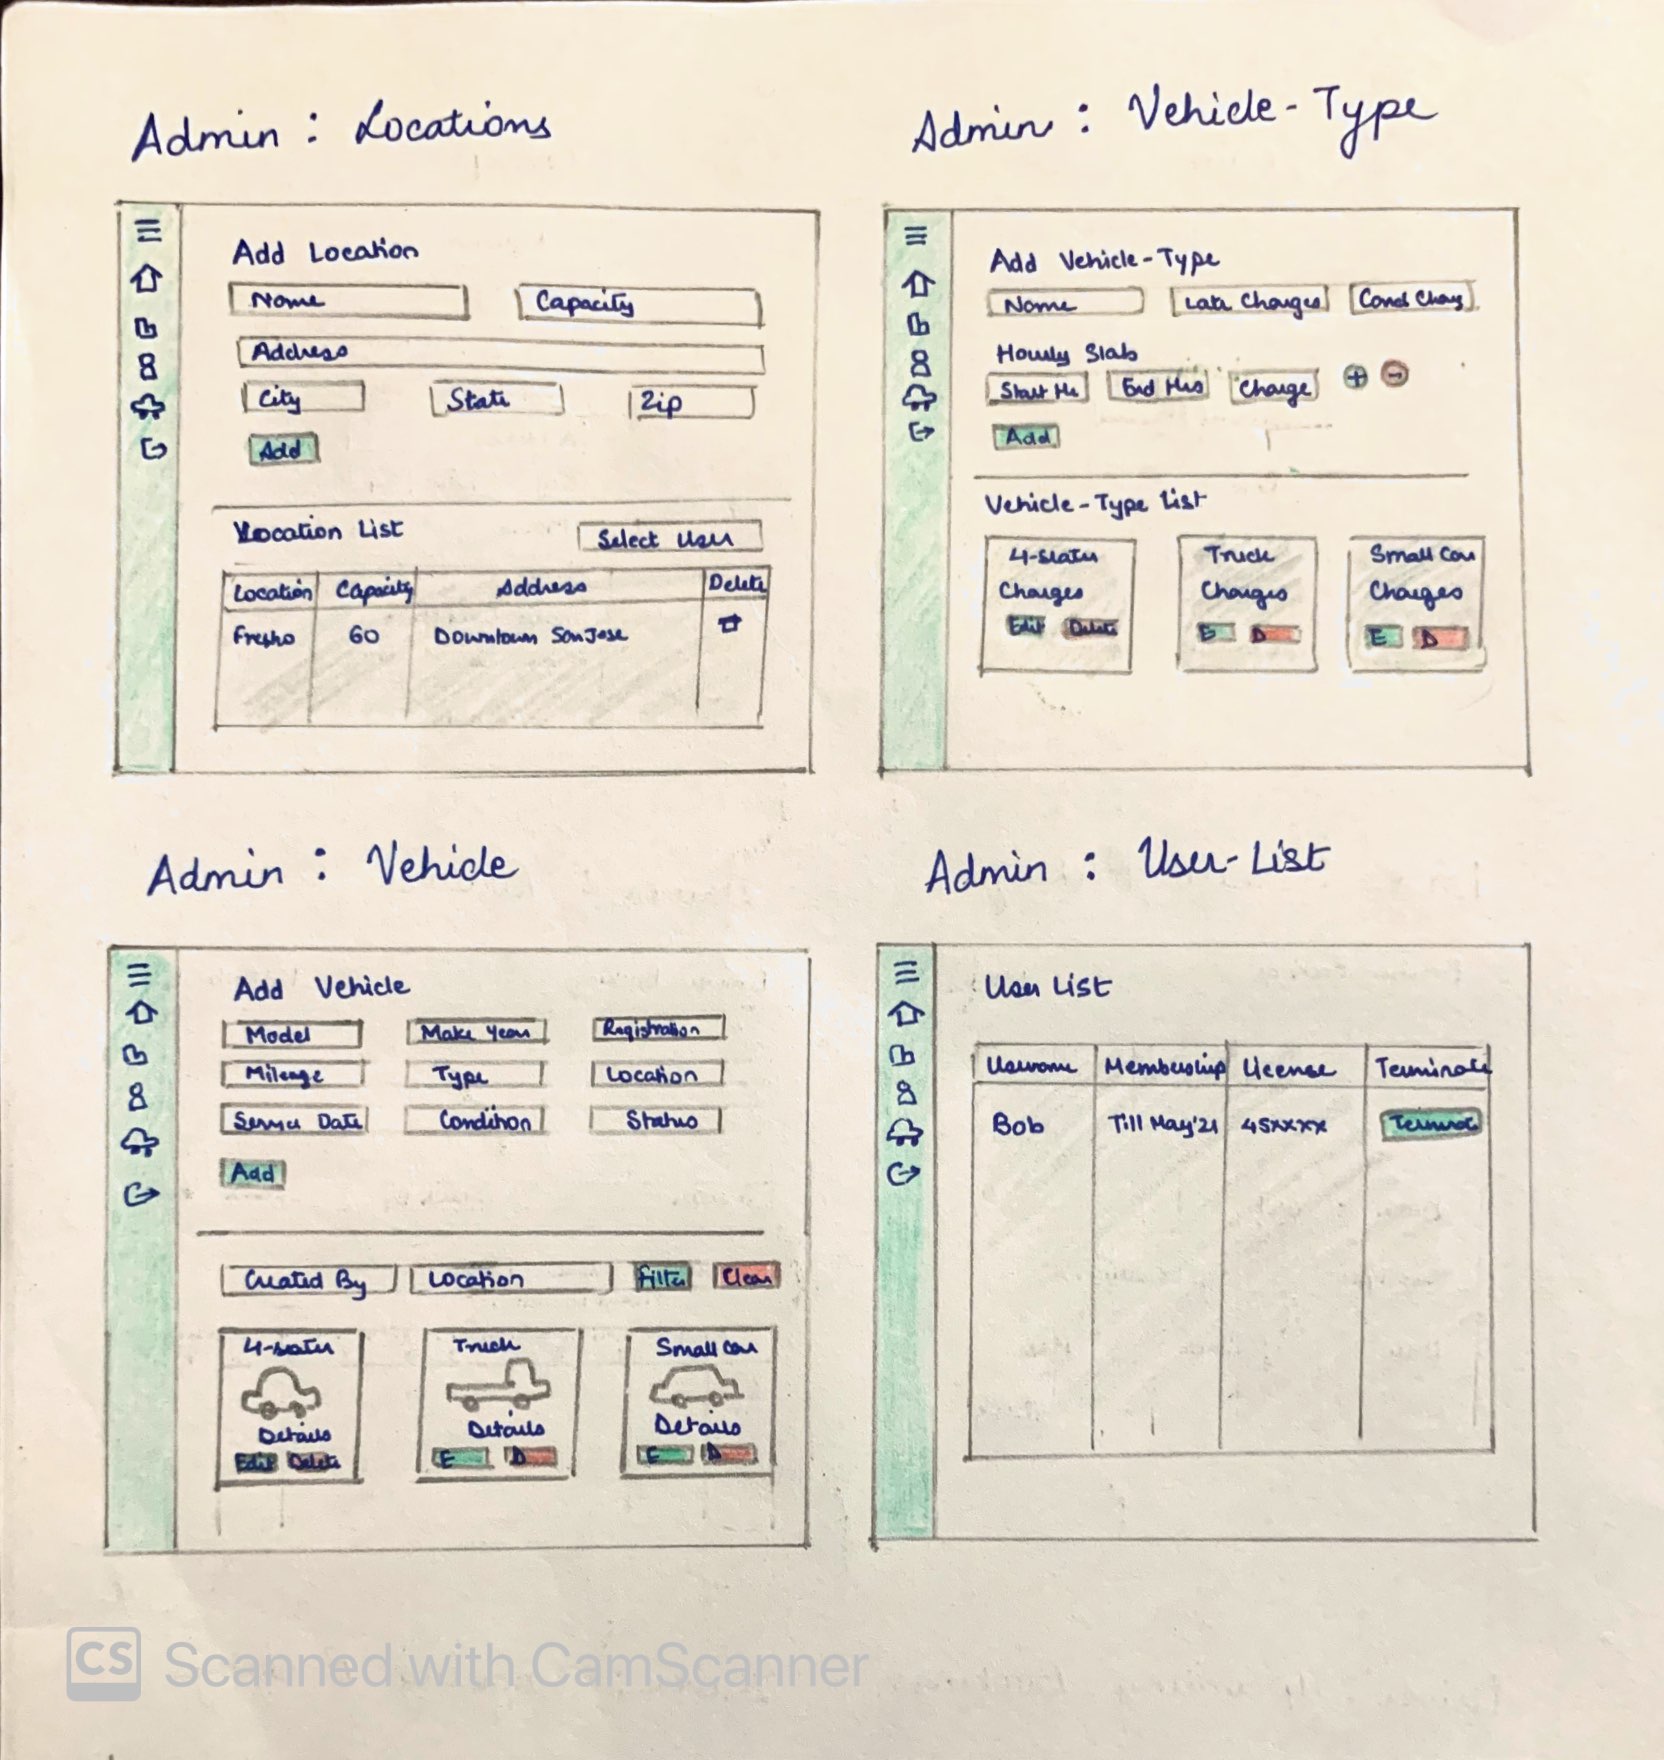 Admin : Locations
Add Location
Name Capacity
Address
City State Zip
Add
Location List Select User
Location Capacity Address Delete
Fresho 60 Downtown San Jose
Admin : Vehicle-Type
Add Vehicle-Type
Name Late Charges Cond Charg
Hourly Slab
Start Hrs End Hrs Charge + -
Add
Vehicle-Type List
4-seater Truck Small Car
Charges Charges Charges
Edit Delete E D E D
Admin : Vehicle
Add Vehicle
Model Make Year Registration
Mileage Type Location
Service Date Condition Status
Add
Created By Location Filter Clear
4-seater Truck Small Car
Details Details Details
Edit Delete E D E D
Admin : User-List
User List
Username Membership License Terminate
Bob Till May'21 45xxxx Terminate
CS Scanned with CamScanner